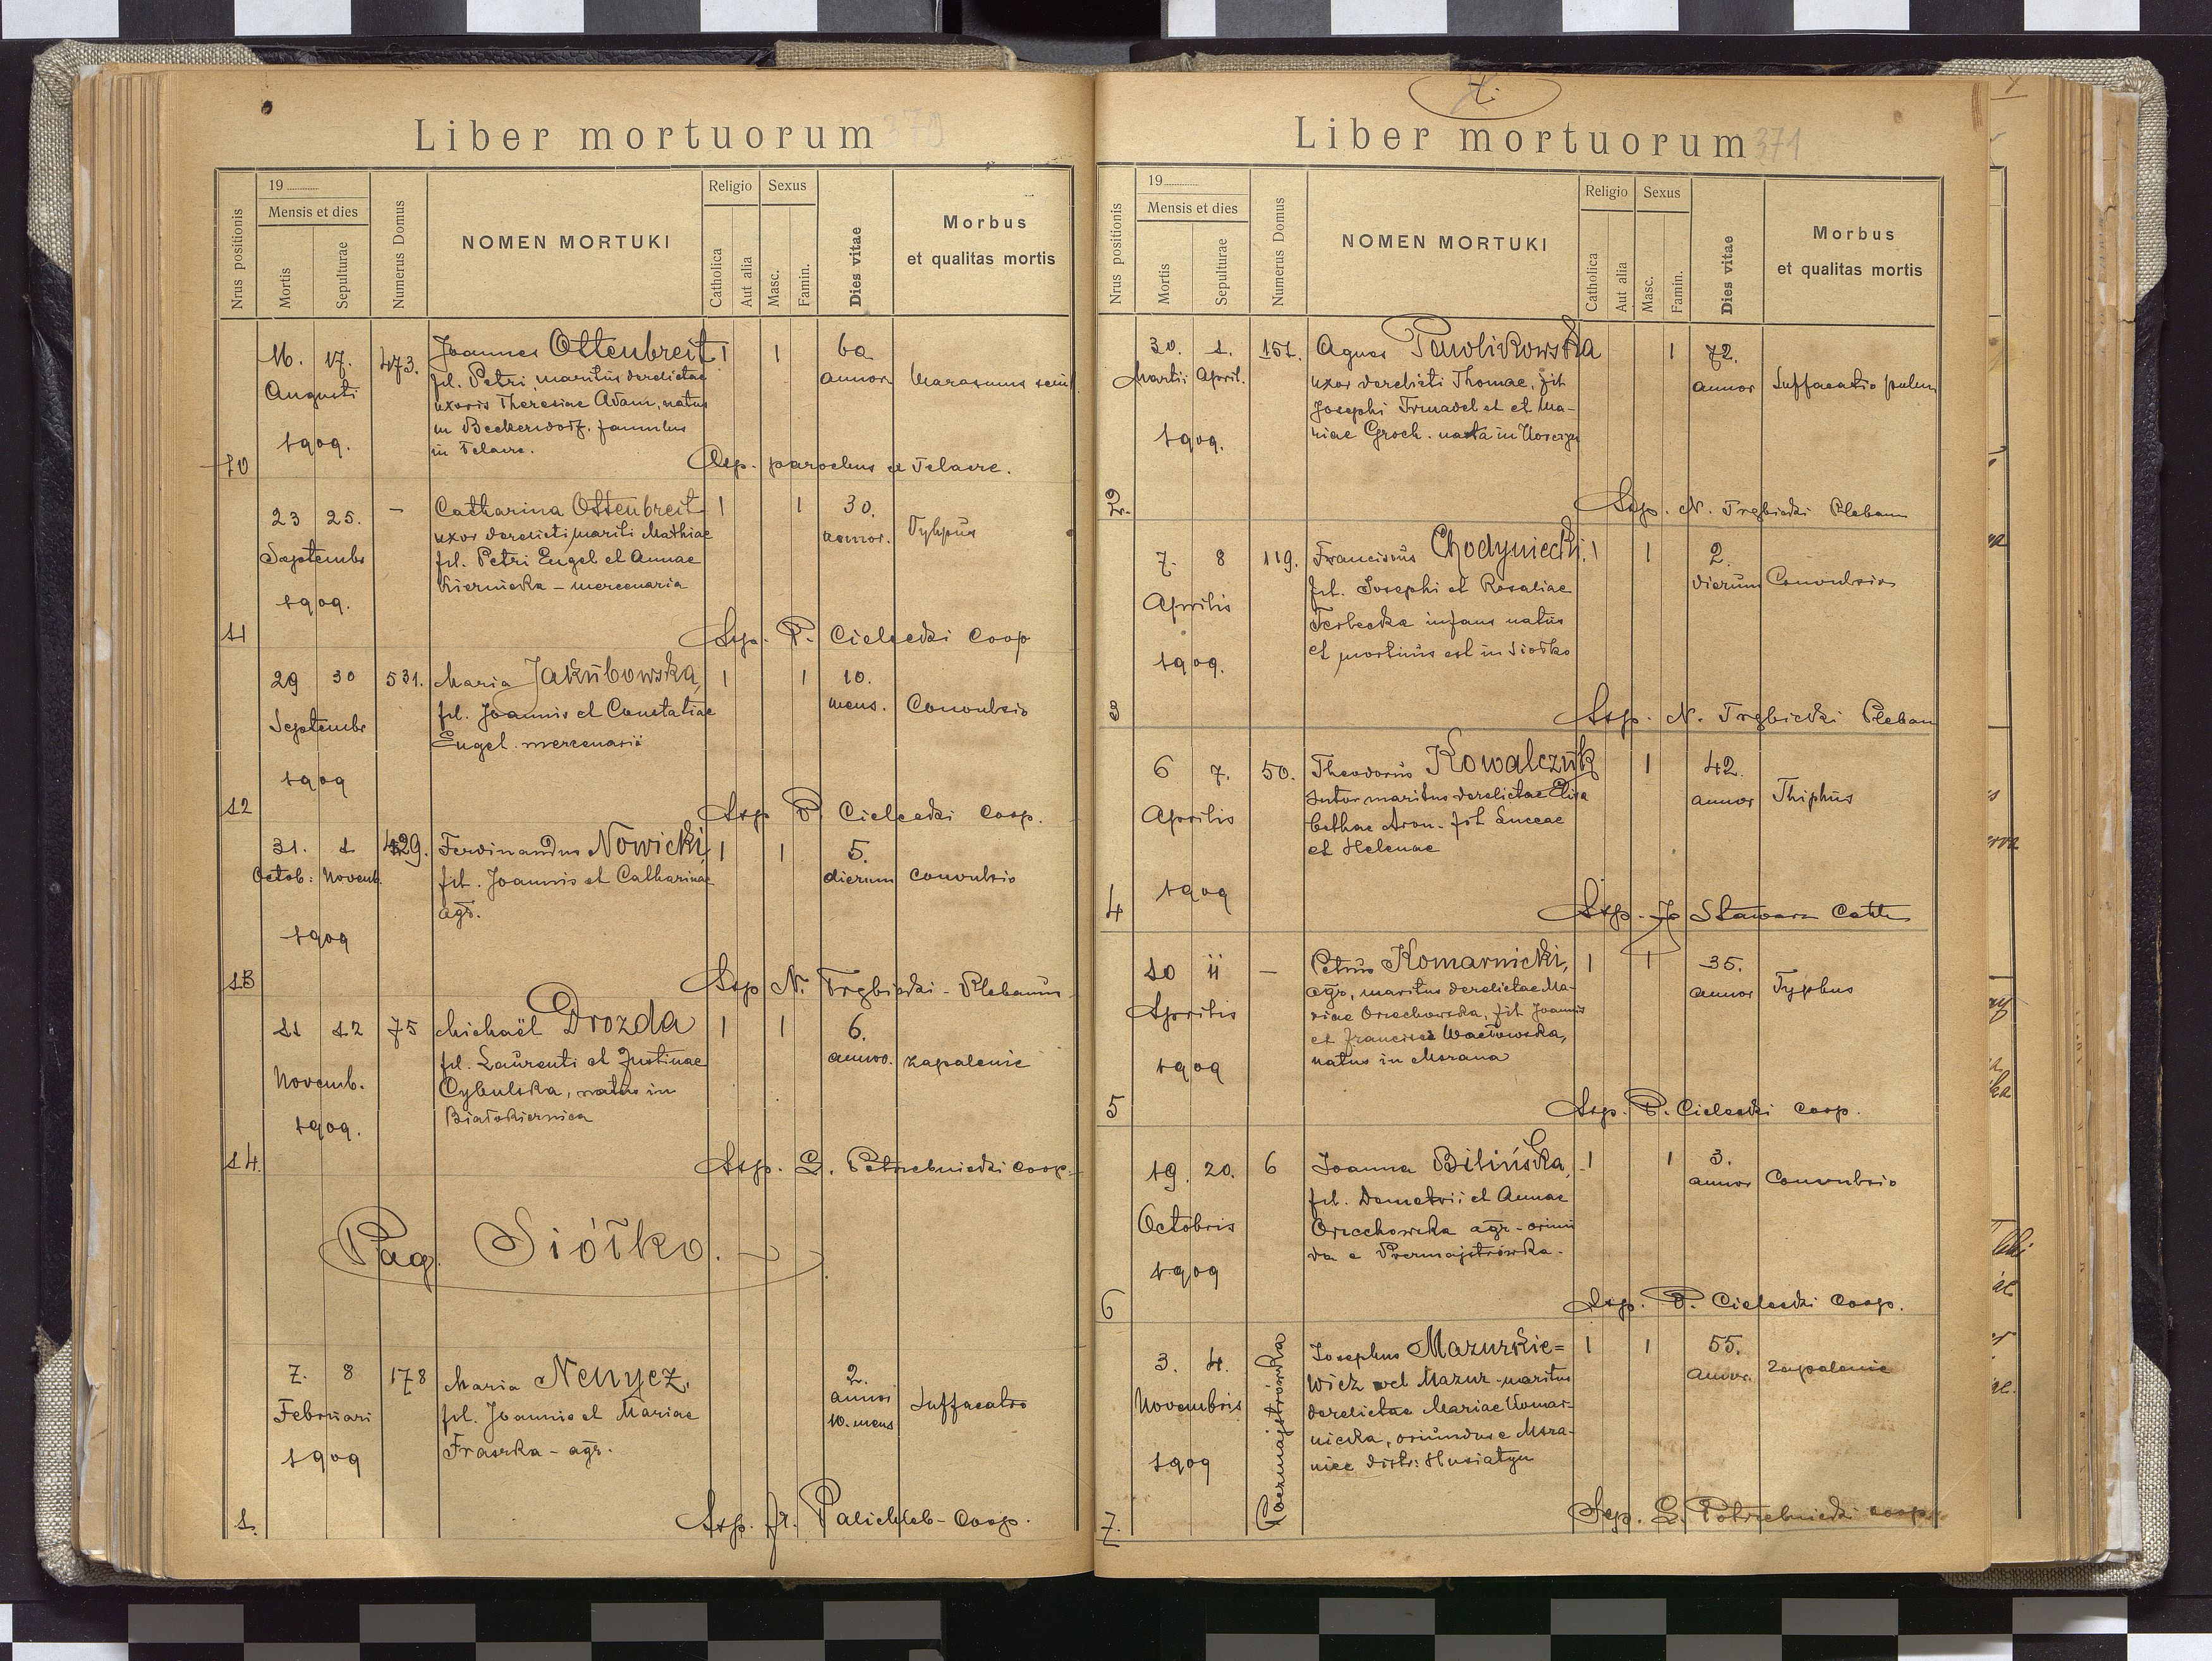 Liber mortuorum 370
Nrus positionis
19
Mensis et dies
Mortis
Sepulturae
Numerus Domus
NOMEN MORTUKI
Religio
Catholica
Aut alia
Sexus
Masc.
Famin.
Dies vitae
Morbus
et qualitas mortis
16. 17. 473. Joannes Ottenbreit 1 1 60
Augusti fil. Petri, maritus derelictae annor. Marasmus senil
uxoris Theresiae Adam, natus
in Beckersdorf. famulus
1909. in Telacre.
10 Asp. parochus e Telacre.
23 25. - Catharina Ottenbreit 1 1 30.
uxor derelicti mariti Mathiae annor. Typhus
Septembr fil. Petri Engel et Annae
Kiernicka - mercenaria
1909.
11 Asp. P. Cielecki Coop
29 30 531. Maria Jakubowska, 1 1 10.
Septembr fil. Joannis et Constatiae mens. Convulsio
Engel. mercenarii
1909
12 Asp P. Cielecki Coop.
31. 1 429. Ferdinandus Nowicki, 1 1 5.
Octob: Novemb. fil. Joannis et Catharinae dierum convulsio
agr.
1909
13 Asp N. Trębicki - Plebanus
11 12 75 Michaël Drozda 1 1 6.
fil. Laurenti et Justinae annor. zapalenie
Novemb. Cybulska, natus in
Białokiernica
1909.
14. Asp. L. Potrzebnicki coop.
Pag. Siółko.
7. 8 178 Maria Nenycz, 2.
Februari fil. Joannis et Mariae annoi Suffocatio
Fraszka - agr. 10. mens
1909
1. Asp. fr. Palichleb - Coop.
Liber mortuorum 371
Nrus positionis
19
Mensis et dies
Mortis
Sepulturae
Numerus Domus
NOMEN MORTUKI
Religio
Catholica
Aut alia
Sexus
Masc.
Famin.
Dies vitae
Morbus
et qualitas mortis
30. 1. 151. Agnes Pawlikowska 1 72.
Martii April. uxor derelicti Thomae, fil annor Suffocatio pulm
Josephi Trmadel et et Ma-
1909. riae Groch. nata in
2. Asp. N. Trębicki Pleban
7. 8 119. Franciscus Chodyniecki. 1 1 2.
fil. Josephi et Rosaliae dierum Convulsio
Aprilis Terlecka infans natus
1909. et mortuus est in Siółko
3 Asp. N. Trębicki Pleban
6 7. 50. Theodorus Kowalczuk 1 42.
Sutor maritus derelictae Elisa annor Thiphus
Aprilis bethae Aron - fil Luceae
et Helenae
1909
4 Asp. Jo Stawarz Catte
10 11 - Petrus Komarnicki, 1 1 35.
agr, maritus derelictae Ma- annor Typhus
Aprilis riae Orzechowska, fil Joannis
et Francisca Wacłowska,
1909 natus in Mszana
5 Asp. P. Cielecki Coop.
19. 20. 6 Joanna Bilińska, 1 1 3.
fil. Demetrii et Annae annor Convulsio
Octobris Orzechowska agr - oriun
da e Poczmajstrówka -
1909
6 Asp. P. Cielecki Coop.
3. 4. Poczmajstrówka Josephus Mazurkie= 1 1 55.
wicz vel Mazur - maritus annor. zapalenie
Novembris derelictae Mariae Komar-
nicka, oriundus e Msza-
1909 niec distr: Husiatyn
7. Asp. L. Potrzebnicki coop.